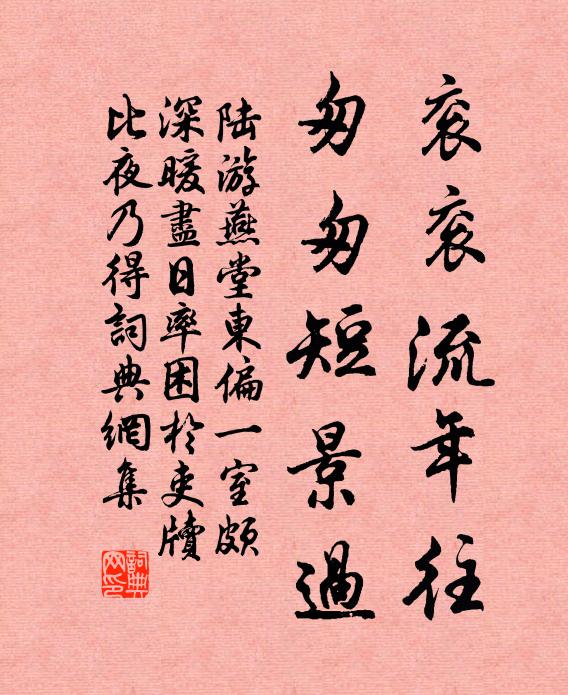 衮衮流年往
匆匆短景過
陆游燕堂東偏一室頗
深暖盡日率困於吏牘
比夜乃得詞典網集
詞典网印